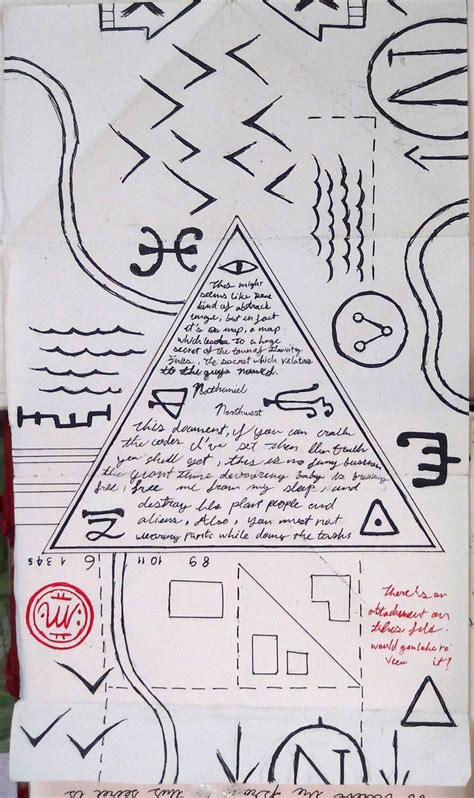 N
This might
seems like some
kind of abstrack
image, but in fact
it's a map, a map
which leades to a huge
secret of the town of Gravity
Falls, the secret which relates
to the guys named.
Nathaniel
Northwest
this document, if you can crack
the codes I've set then the truth
you shall got, this is no funny business
the giant time devouring baby is breaking
free, free me from my sleep, and
destroy his plant people and
aliens, Also, you must not
wearing pants while doing the tasks
1 3 4 5 6 10 11 8 9
There's an
attachement on
this file.
would you like to
view it?
N